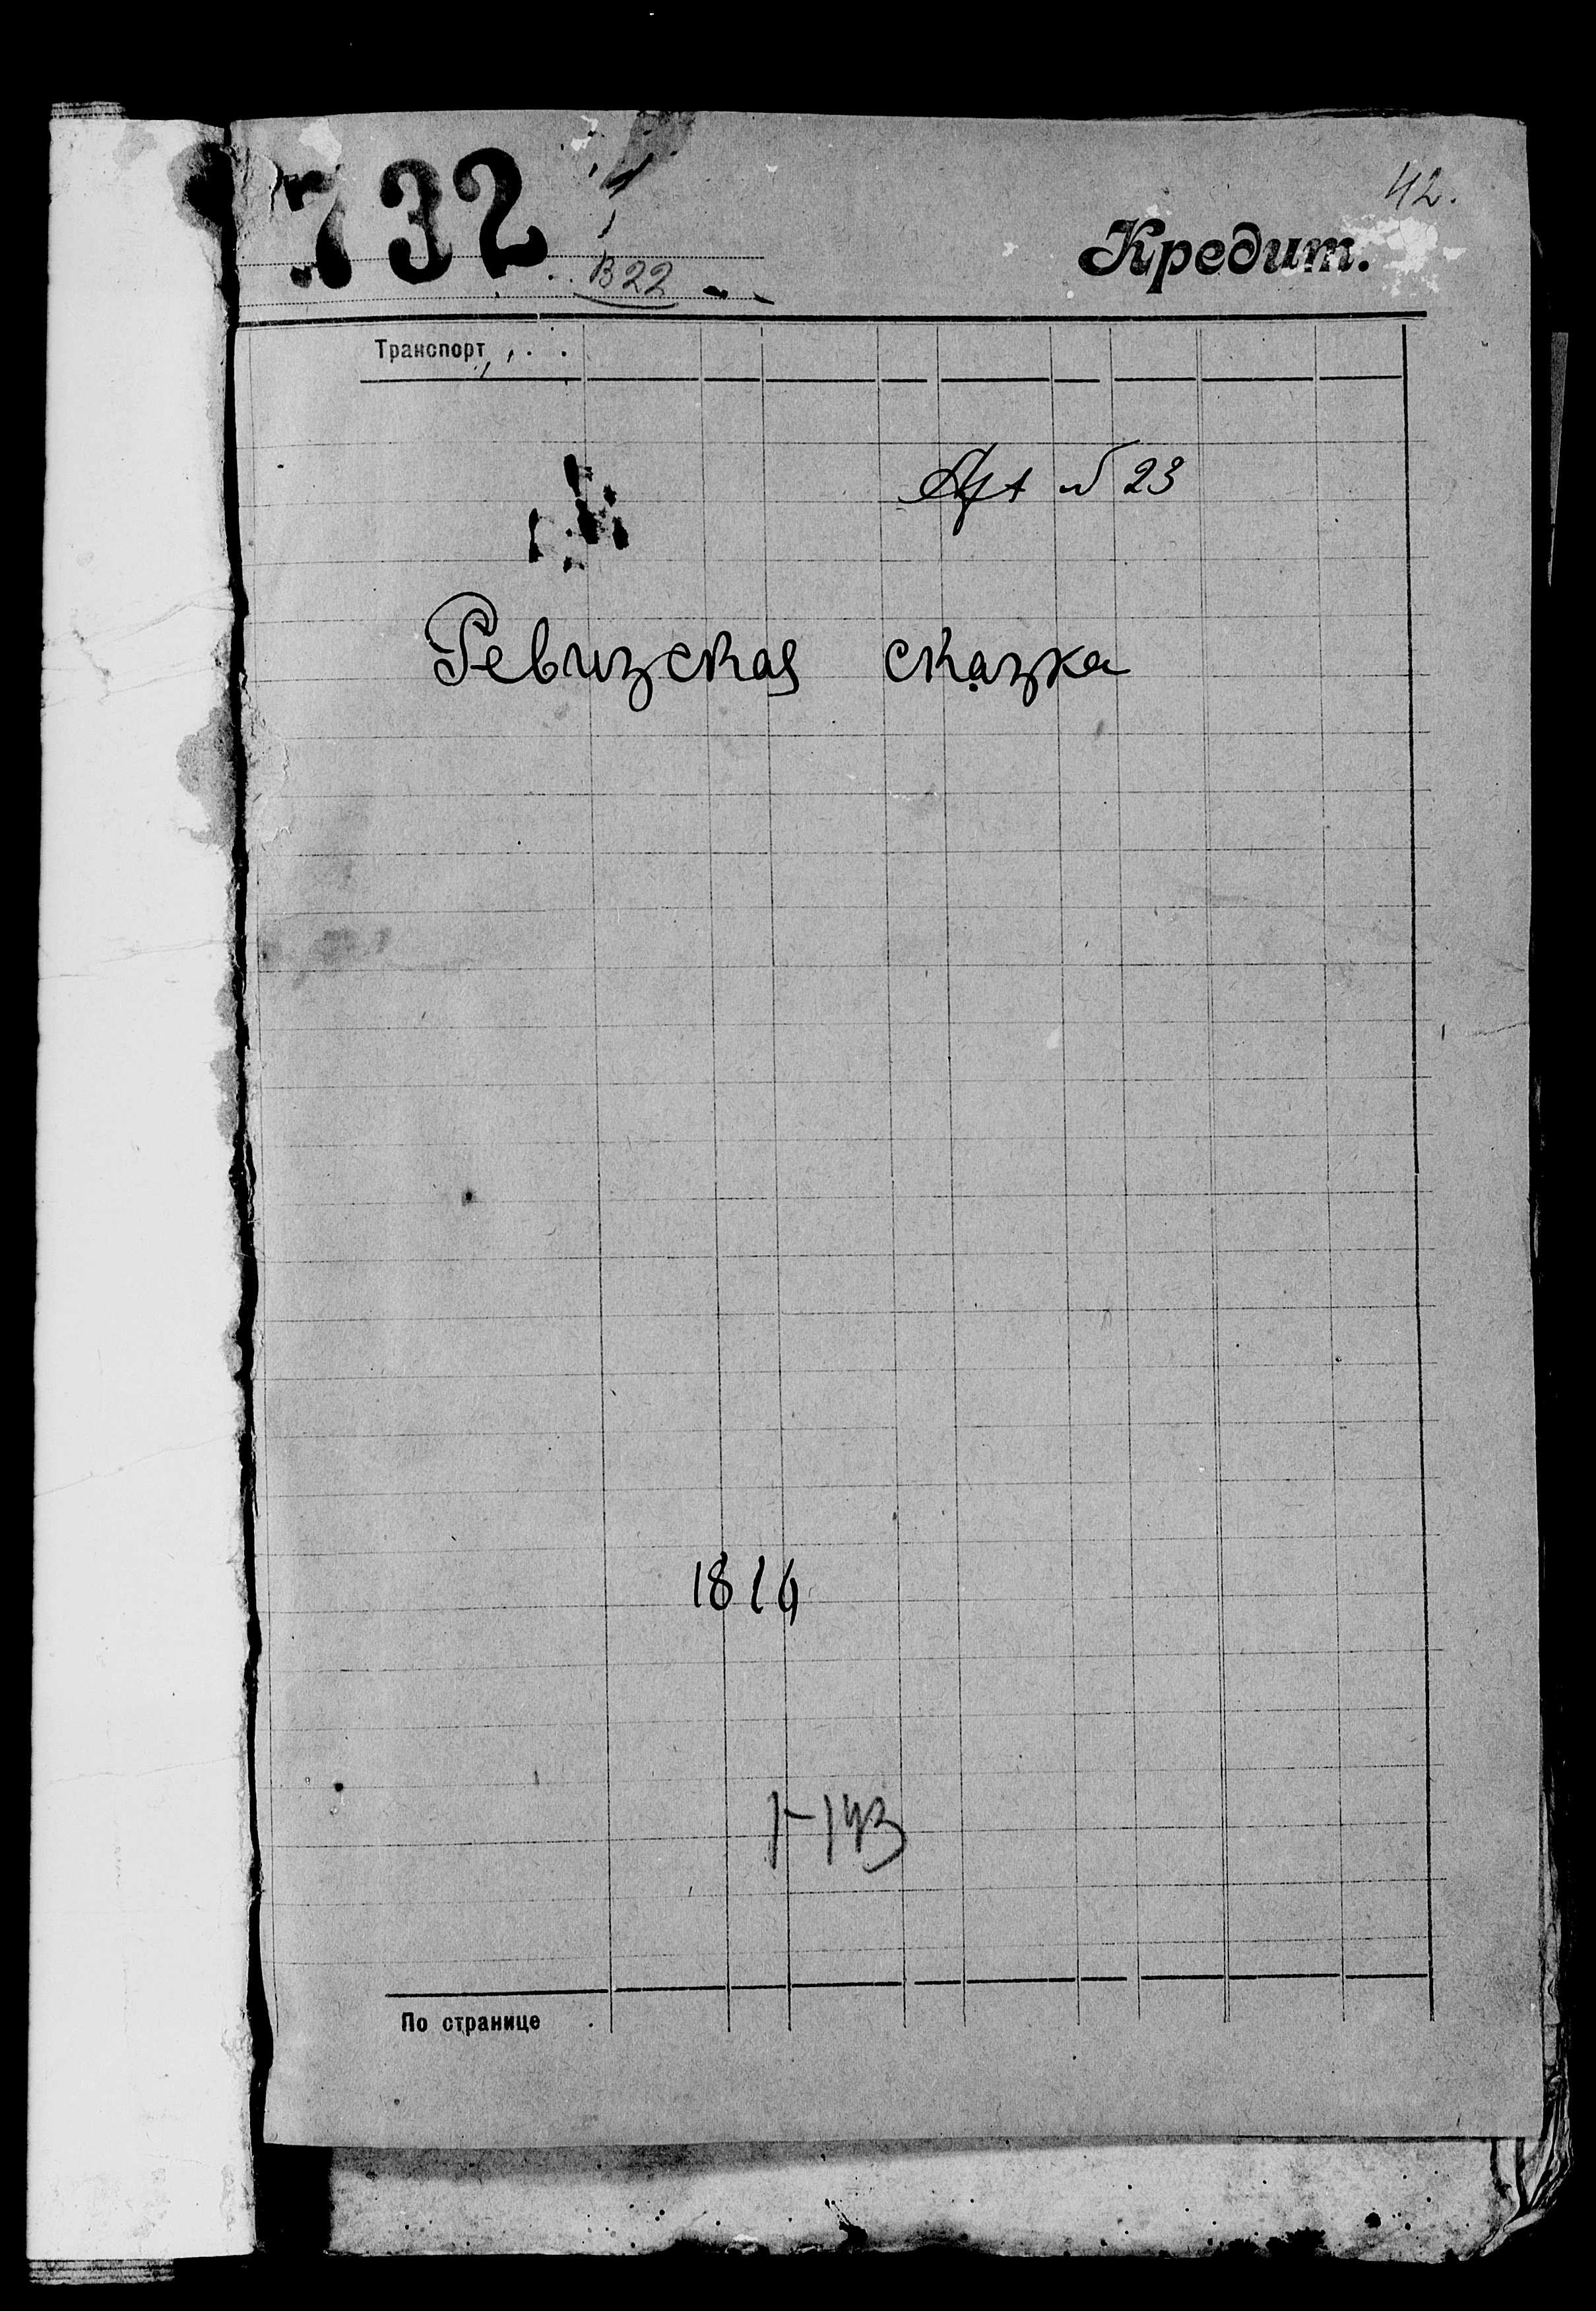 42.
732
Кредит.
В22
Транспорт
№ 23
Ревизская сказка
1816
1-143
По странице